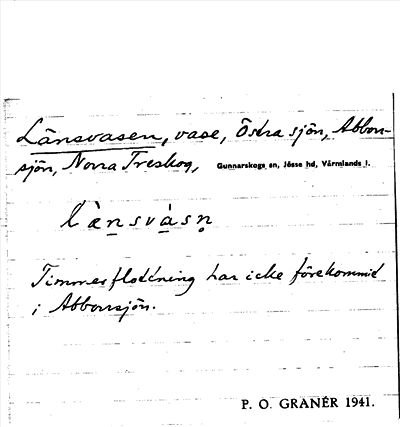 Länsvasen, vase, Östra sjön, Abborr-
sjön, Norra Treskog, Gunnarskogs sn, Jösse hd, Värmlands l.
lànsvásn̥
Timmerflottning har icke förekommit
i Abborrsjön.
P. O. GRANÉR 1941.